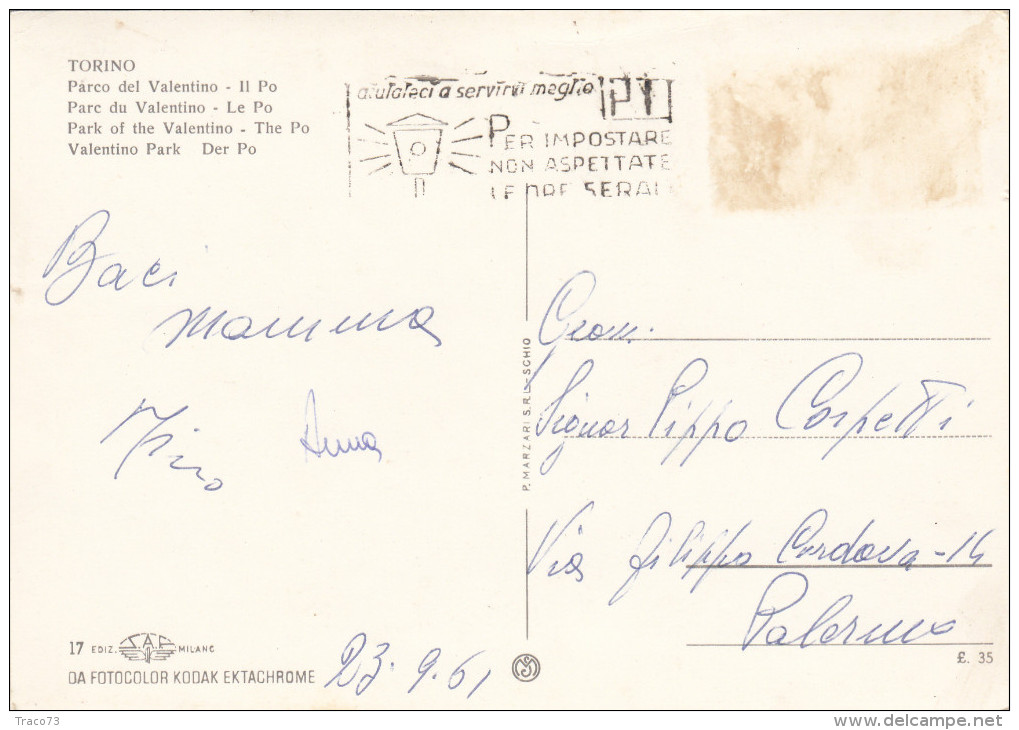 TORINO
Parco del Valentino - Il Po
Parc du Valentino - Le Po
Park of the Valentino - The Po
Valentino Park Der Po
aiutateci a servirvi meglio
PT
PER IMPOSTARE
NON ASPETTATE
LE ORE SERALI
Baci
mamma
Nino
Anna
Geom.
Signor Pippo Corpetti
Via Filippo Cordova - 14
Palermo
P. MARZARI S.R.L. - SCHIO
17 EDIZ. S.A.F. MILANO
DA FOTOCOLOR KODAK EKTACHROME
23.9.61
£. 35
Traco73
www.delcampe.net